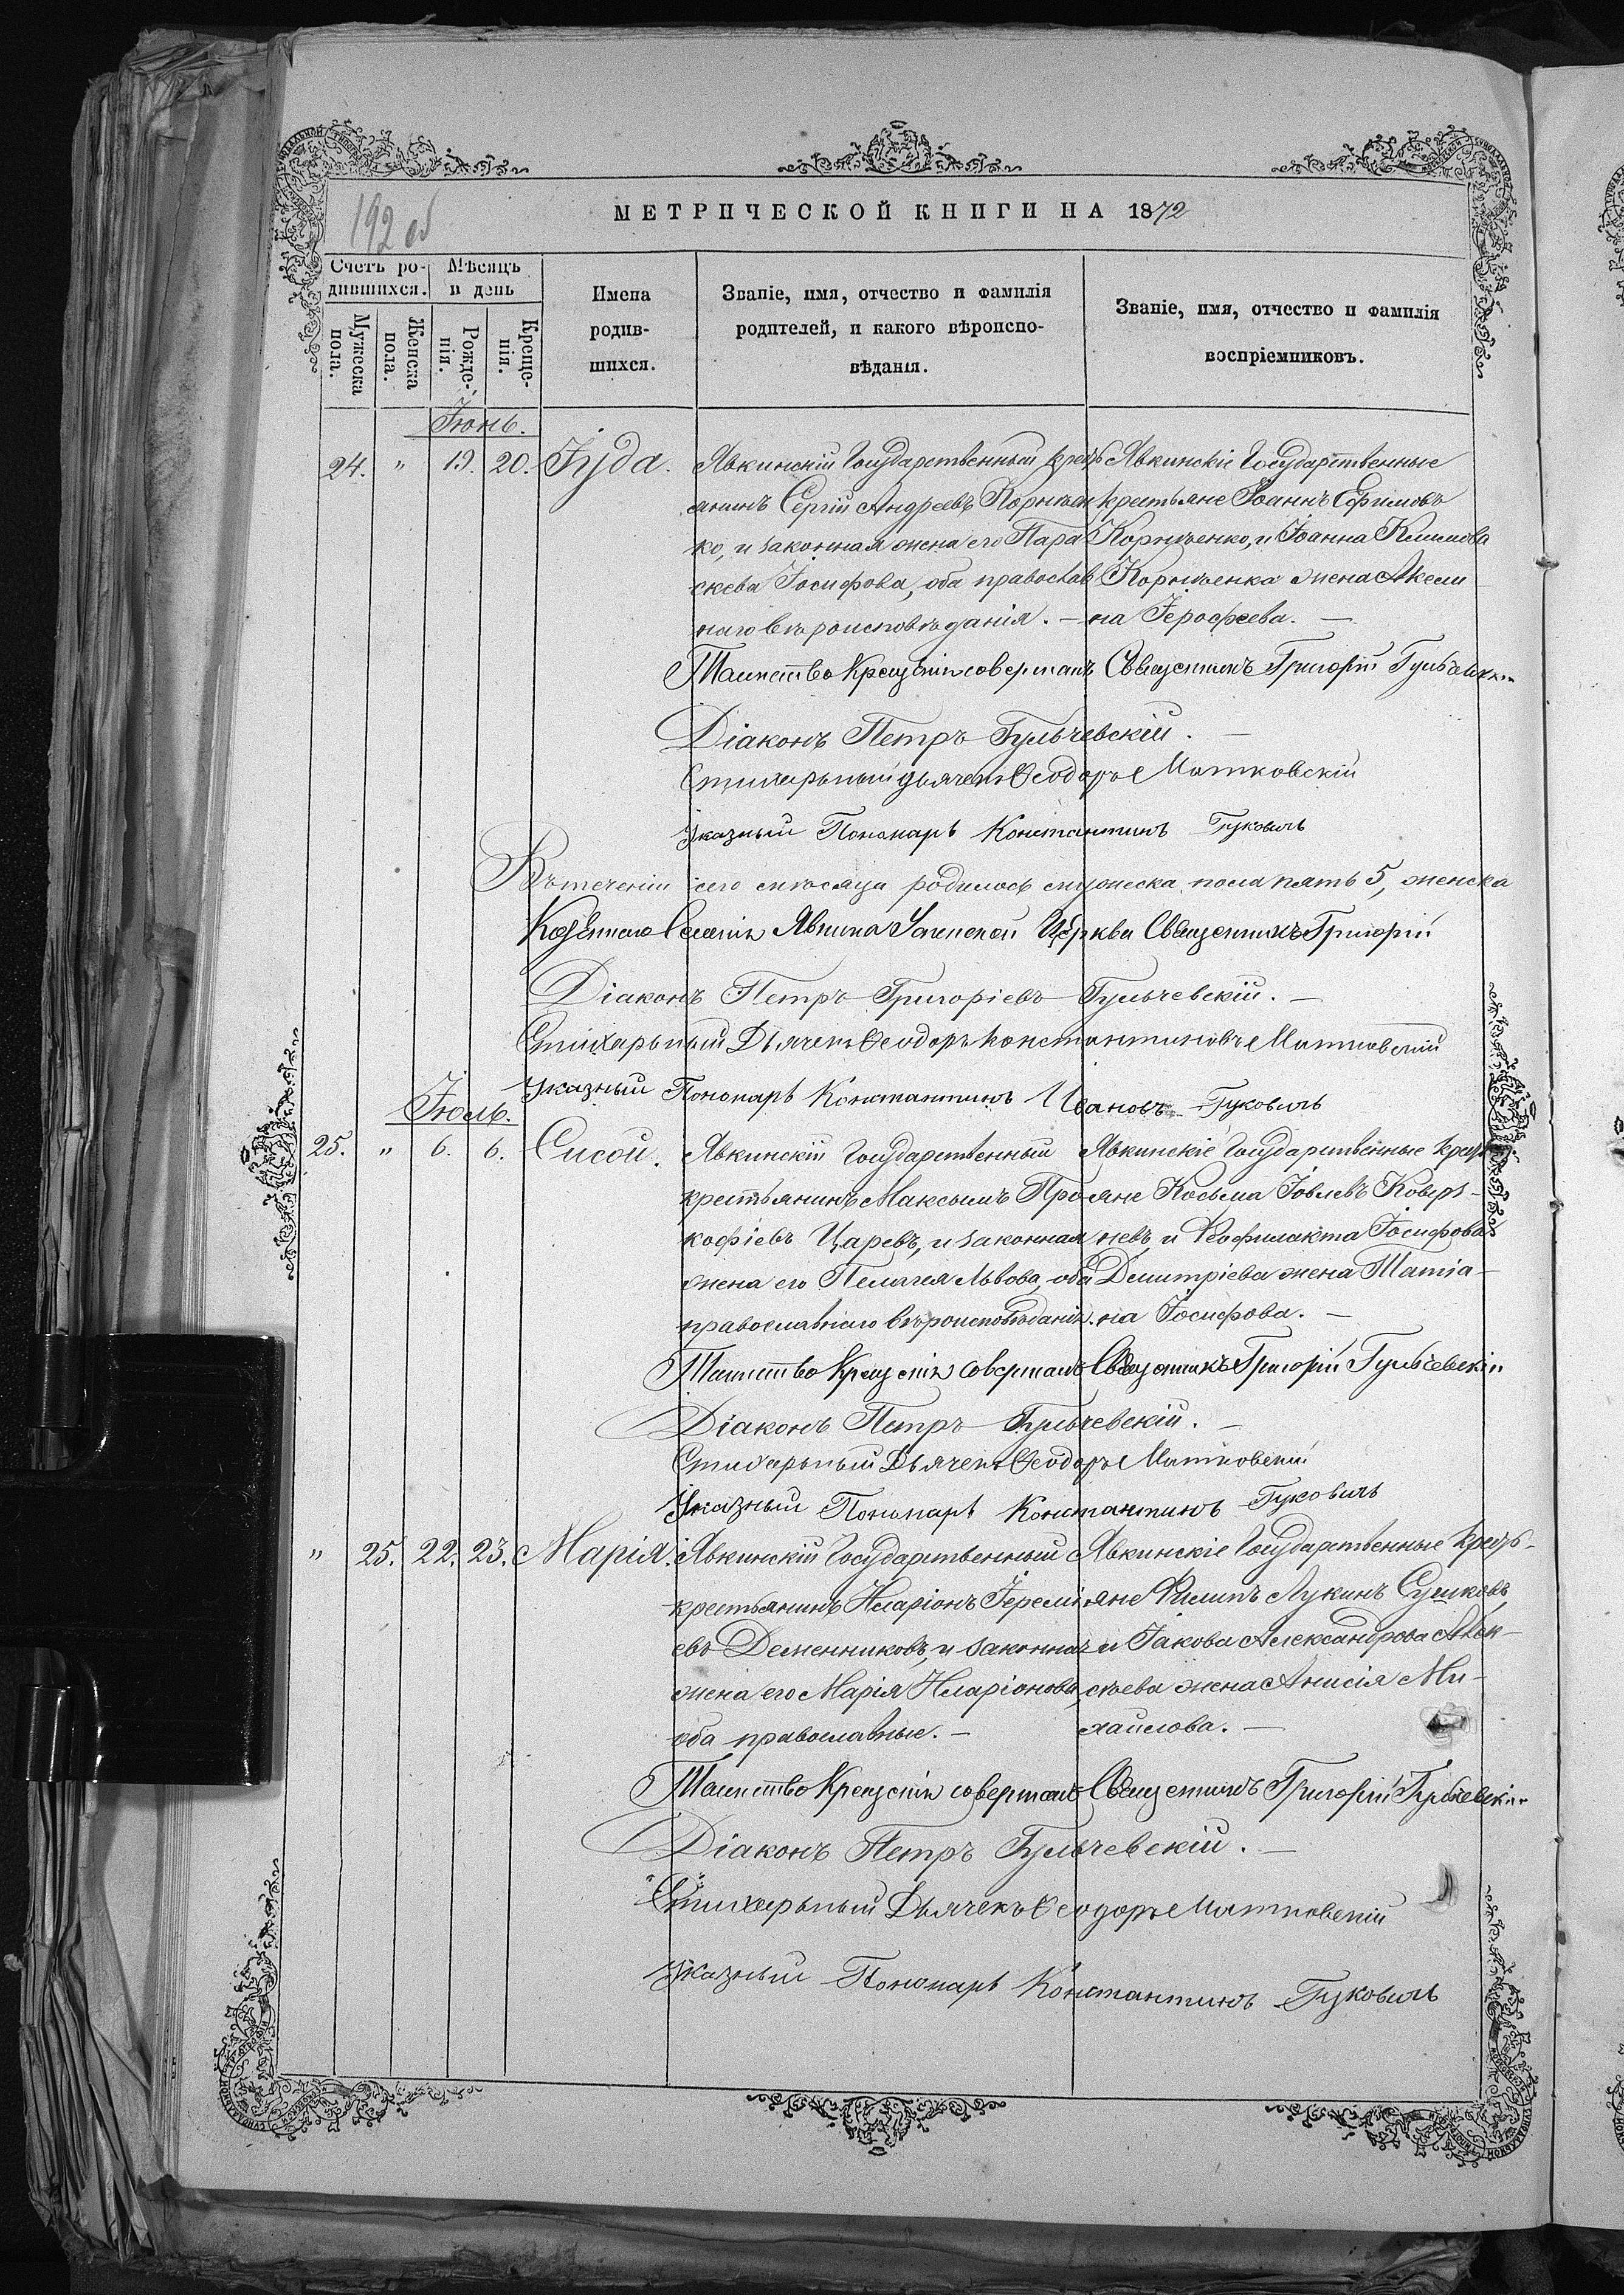 192 об
МЕТРИЧЕСКОЙ КНИГИ НА 1872
Счетъ ро-
дившихся.
Мѣсяцъ
и день
Мужеска
пола.
Женска
пола.
Рожде-
нія.
Креще-
нія.
Имена
родив-
шихся.
Званіе, имя, отчество и фамилія
родителей, и какого вѣроиспо-
вѣданія.
Званіе, имя, отчество и фамилія
воспріемниковъ.
Іюнь.
24. " 19. 20. Іуда.
Явкинскій Государственный крест
янинъ Сергій Андреевъ Корніен
ко, и законная жена его Пара
скева Іосифова, оба православ
наго вѣроисповѣданія. —
Явкинскіе Государственные
крестьяне Іоаннъ Ефимовъ
Корніенко, и Іоанна Климова
Корніенка жена Акели
на Іерофеева. —
Таинство Крещенія совершалъ Священникъ Григорій Гульчевскій
Діаконъ Петръ Гульчевскій. —
Стихарьный дьячекъ Ѳеодоръ Матковскій
Указный Пономарь Константинъ Гуковичъ
Въ теченіи сего мѣсяца родилось мужеска пола пять 5, женска
Казеннаго Селенія Явкина Успенской Церкви Священникъ Григорій
Діаконъ Петръ Григоріевъ Гульчевскій. —
Стихарьный Дьячекъ Ѳеодоръ Константиновъ Матковскій
Указный Пономарь Константинъ Ивановъ Гуковичъ
Іюль.
25. " 6. 6. Сисой.
Явкинскій Государственный
крестьянинъ Максимъ Про
кофіевъ Царевъ, и законная
жена его Пелагея Львова, оба
православнаго вѣроисповѣданія.
Явкинскіе Государственные крест
яне Косьма Іовлевъ
невъ и Ѳеофилакта Іосифова
Димитріева жена Татіа-
на Іосифова. —
Таинство Крещенія совершалъ Священникъ Григорій Гульчевскій
Діаконъ Петръ Гульчевскій. —
Стихарьный Дьячекъ Ѳеодоръ Матковскій
Указный Пономарь Константинъ Гуковичъ
" 25. 22. 23. Марія.
Явкинскій Государственный
крестьянинъ Иларіонъ Іеремі
евъ Деменниковъ, и законная
жена его Марія Иларіонова,
оба православные. —
Явкинскіе Государственные крест-
яне Филипъ Лукинъ Сушковъ,
и Іакова Александрова Авси-
ѣева жена Анисія Ми-
хайлова. —
Таинство Крещенія совершалъ Священникъ Григорій Гульчевскій
Діаконъ Петръ Гульчевскій. —
Стихарьный Дьячекъ Ѳеодоръ Матковскій
Указный Пономарь Константинъ Гуковичъ